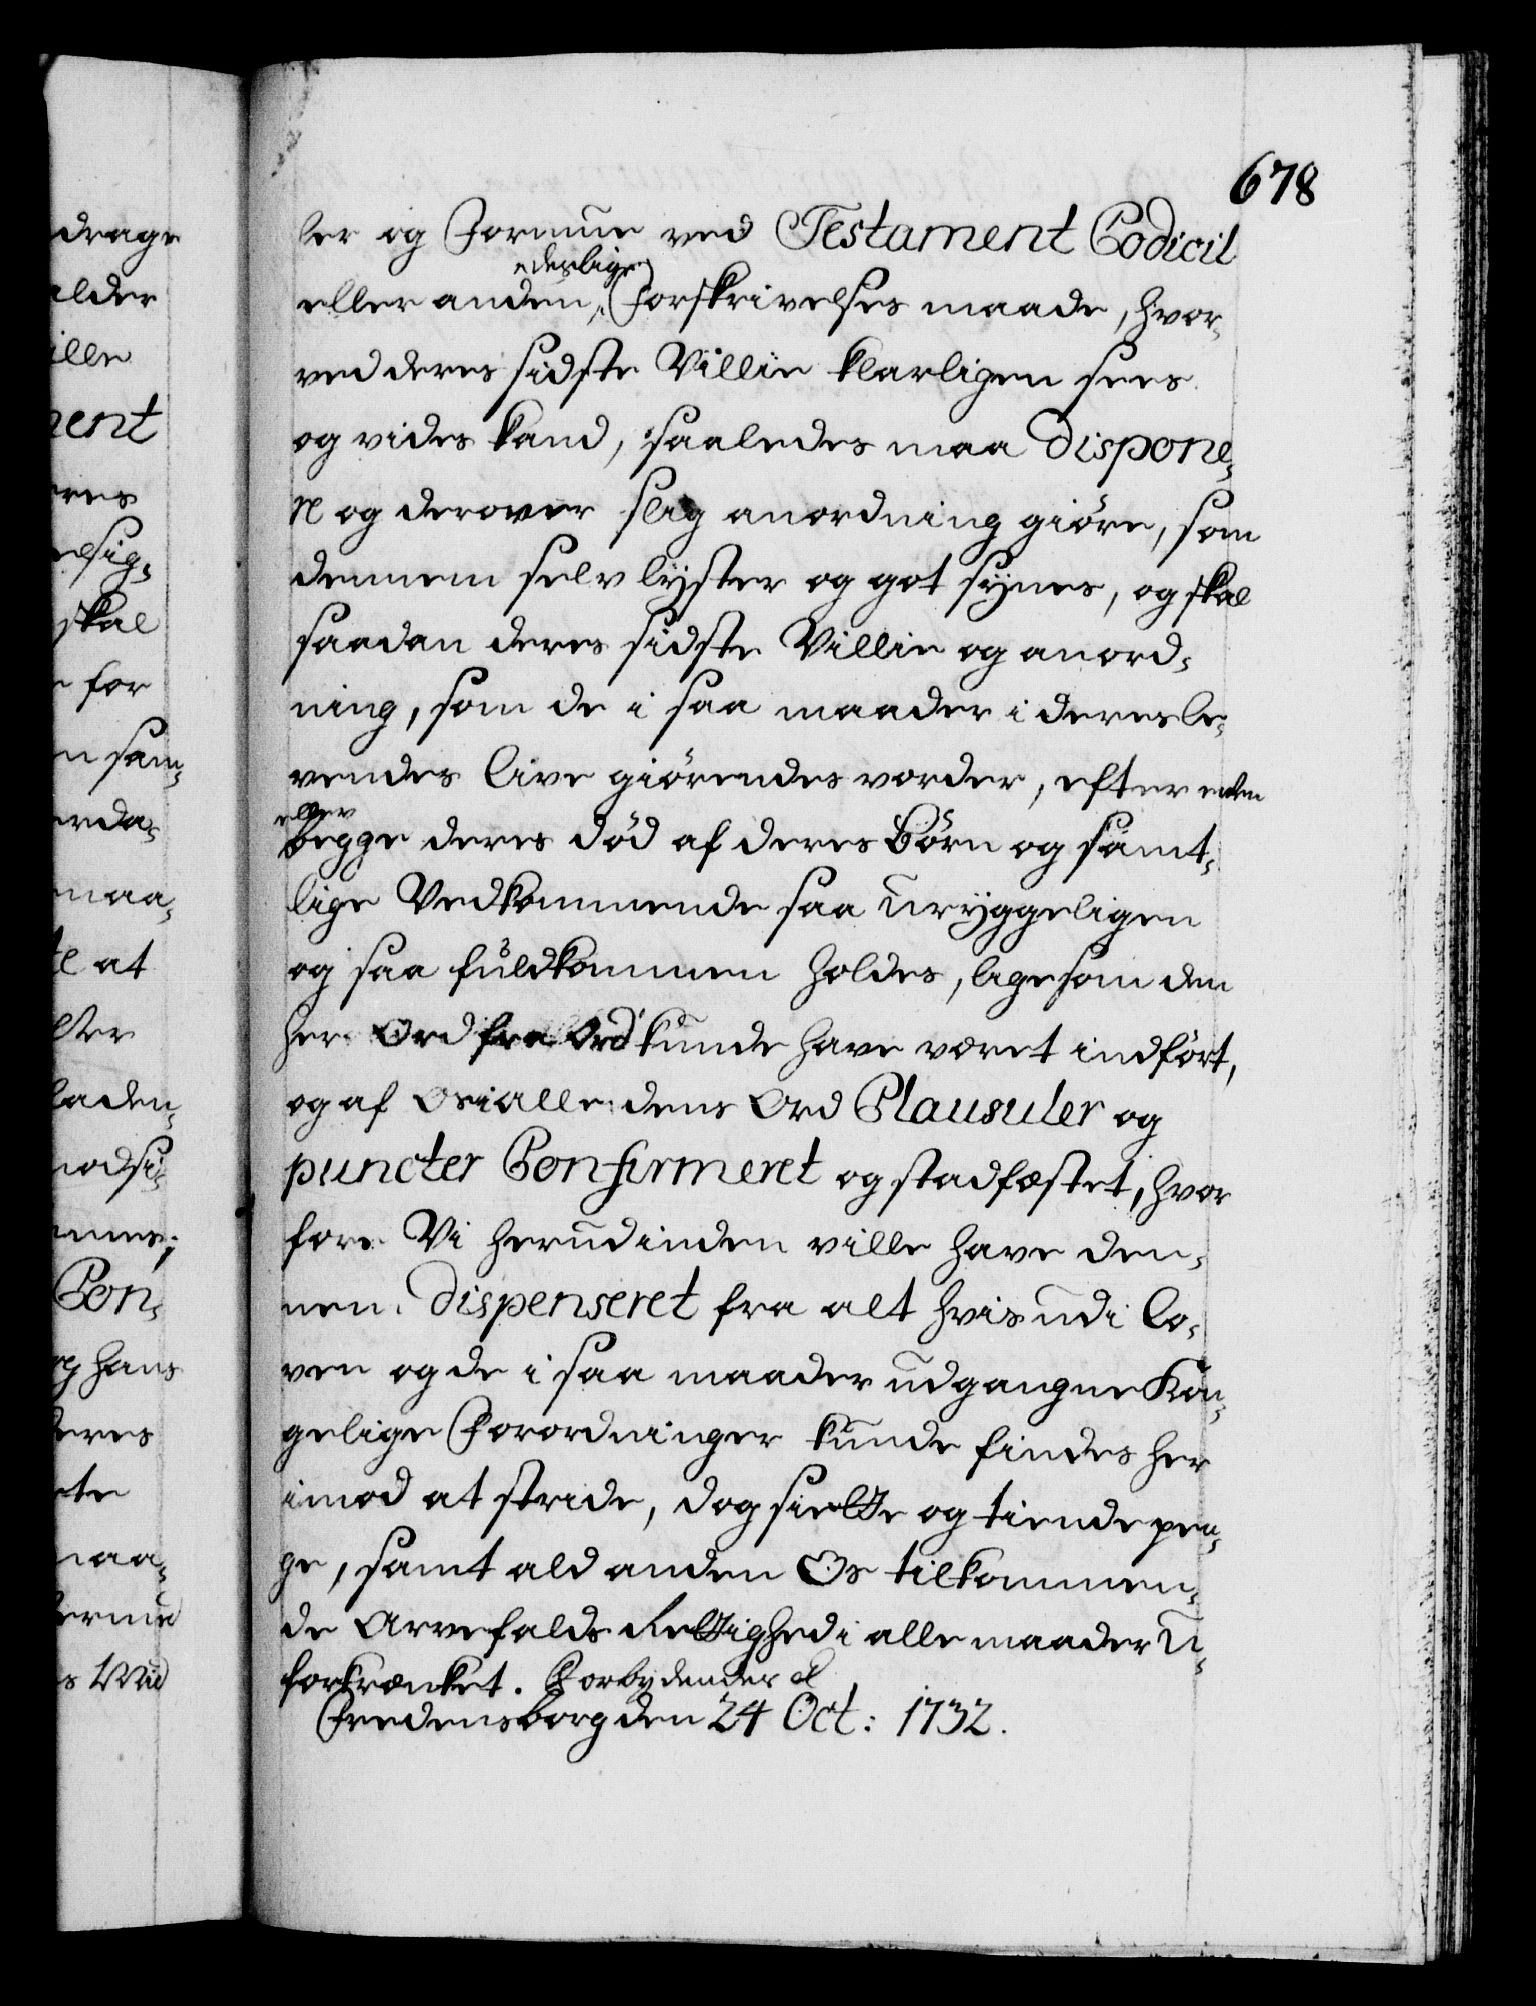 678
ler og Formue ved Testament Codicil
eller anden deslige Forskrivelses maade, hvor-
ved deres sidste Villie klarligen sees
og vides kand, saaledes maa dispone-
re og derover slig anordning giöre, som
dennem selv lyster og got synes, og skal
saadan deres sidste Villie og anord-
ning, som de i saa maader i deres le-
vendes live giörendes vorder, efter een
eller
begge deres död af deres Börn og samt-
lige Vedkommende saa uryggeligen
og saa fuldkommen holdes, ligesom den
her Ord fra Ord kunde have været indfört,
og af Os i alle dens Ord Clausuler og
puncter Confirmeret og stadfæstet, hvor
fore Vi herudinden ville have den-
nem dispenseret fra alt hvis udi Lo-
ven og de i saa maader udgangne Kon-
gelige Forordninger kunde findes her
imod at stride, dog siette og tiende pen-
ge, samt ald anden Os tilkommen-
de Arvefalds Rettighed i alle maader u-
forkrænket. Forbydendes
Fredensborg den 24 Oct: 1732.
drage
alder
ille
ment
eres
elsig-
skal
for
n sam-
erda-
maa-
at
lter
laden-
modsi-
Con-
og hans
deres
te
maa-